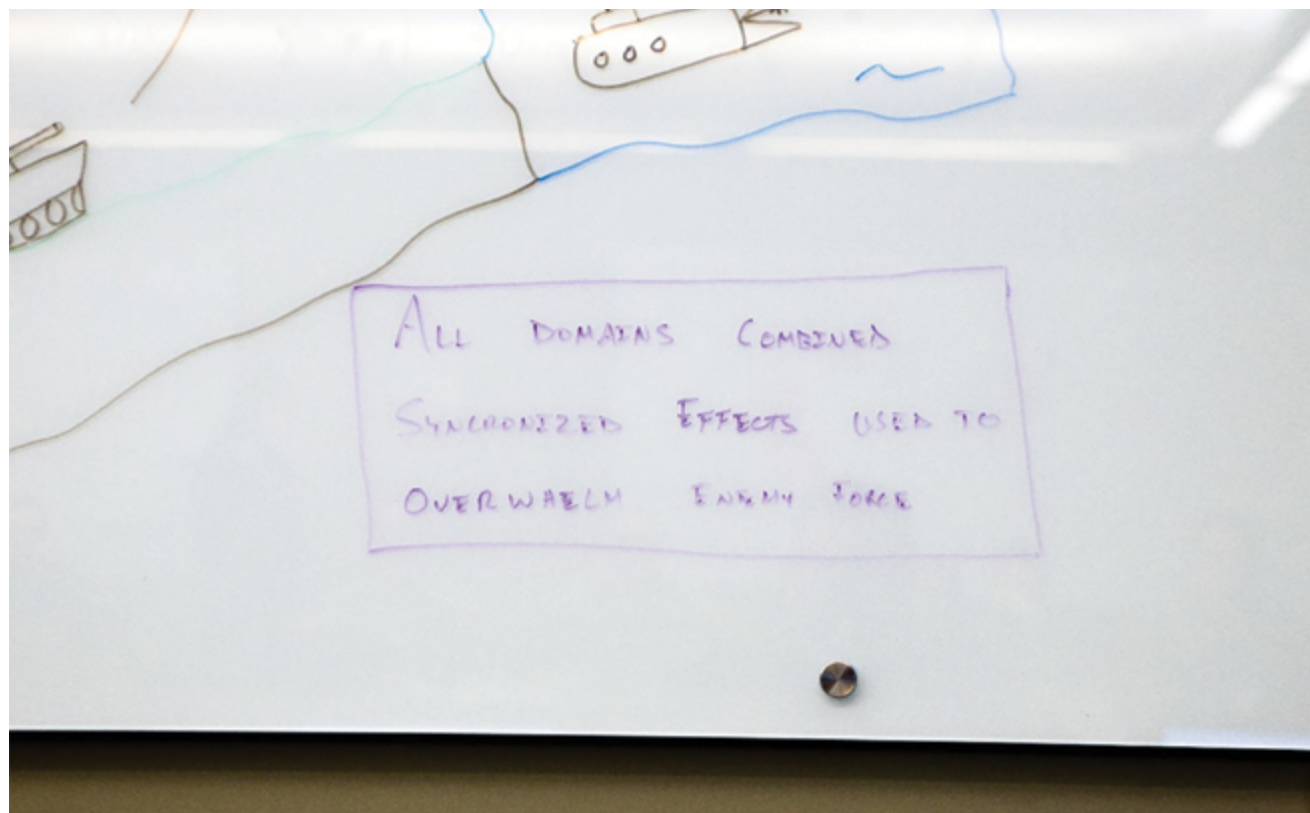 All Domains Combined
Syncronized Effects used to
Overwhaelm Enemy Force